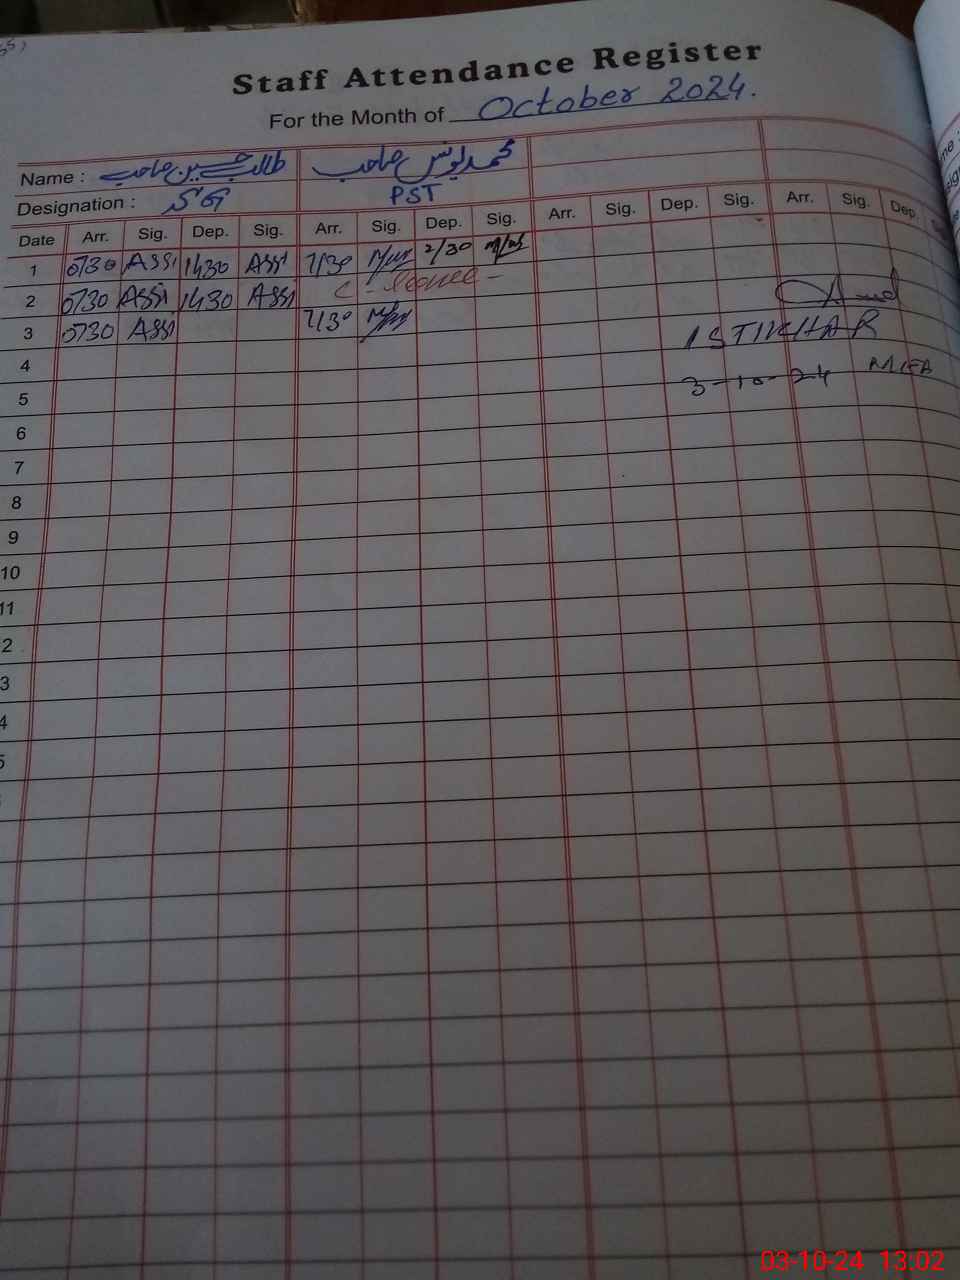 Staff Attendance Register
For the Month of October 2024.
Name : طالب حسین صاحب محمد یونس صاحب
Designation : PST
Date Arr. Sig. Dep. Sig. Arr. Sig. Dep. Sig. Arr. Sig. Dep. Sig. Arr. Sig. Dep.
1 0730 Assi 1430 Assi 7/30 2/30
2 0730 Assi 1430 Assi C-Leave-
3 0730 Assi 7/30
ISTIKHAR
4
3-10-24
5
6
7
8
9
10
11
2
3
4
5
03-10-24 13:02